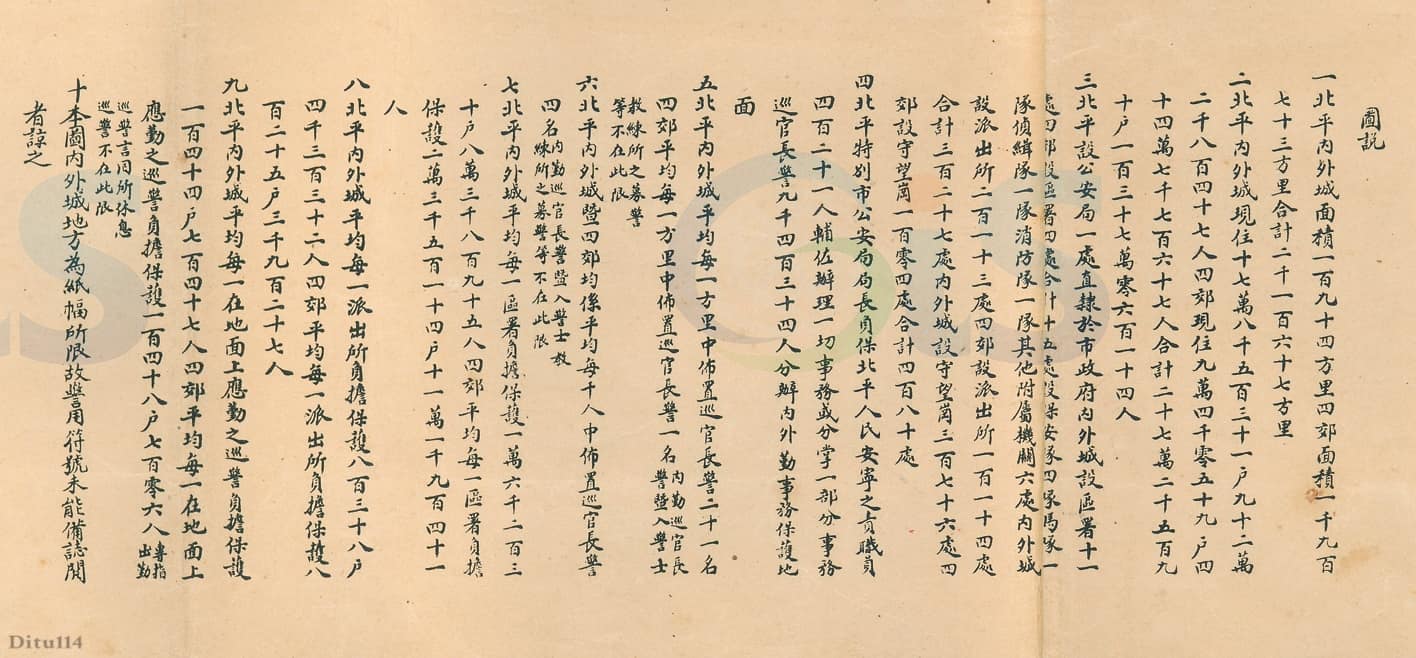 圖説
一北平內外城面積一百九十四方里四郊面積一千九百
七十三方里合計二千一百六十七方里
二北平內外城現住十七萬八千五百三十一戶九十二萬
二千八百四十七人四郊現住九萬四千零五十九戶四
十四萬七千七百六十七人合計二十七萬二千五百九
十戶一百三十七萬零六百一十四人
三北平設公安局一處直隸於市政府內外城設區署十一
處四郊設區署四處合計十五處設保安隊四隊馬隊一
隊偵緝隊一隊消防隊一隊其他附屬機關六處內外城
設派出所二百一十三處四郊設派出所一百一十四處
合計三百二十七處內外城設守望崗三百七十六處四
郊設守望崗一百零四處合計四百八十處
四北平特別市公安局局長負保北平人民安寧之責職員
四百二十一人輔佐辦理一切事務或分掌一部分事務
巡官長警九千四百三十四人分辦內外勤事務保護地
面
五北平內外城平均每一方里中佈置巡官長警二十一名
四郊平均每一方里中佈置巡官長警一名內勤巡官長
警暨入警士
教練所之募警
等不在此限
六北平內外城暨四郊均係平均每千人中佈置巡官長警
四名內勤巡官長警暨入警士教
練所之募警等不在此限
七北平內外城平均每一區署負擔保護一萬六千二百三
十戶八萬三千八百九十五人四郊平均每一區署負擔
保護二萬三千五百一十四戶十一萬一千九百四十一
人
八北平內外城平均每一派出所負擔保護八百三十八戶
四千三百三十二人四郊平均每一派出所負擔保護八
百二十五戶三千九百二十七人
九北平內外城平均每一在地面上應勤之巡警負擔保護
一百四十四戶七百四十七人四郊平均每一在地面上
應勤之巡警負擔保護一百四十八戶七百零六人專指
出勤
巡警言因所休息
巡警不在此限
十本圖內外城地方為紙幅所限故警用符號未能備誌閱
者諒之
Ditu114